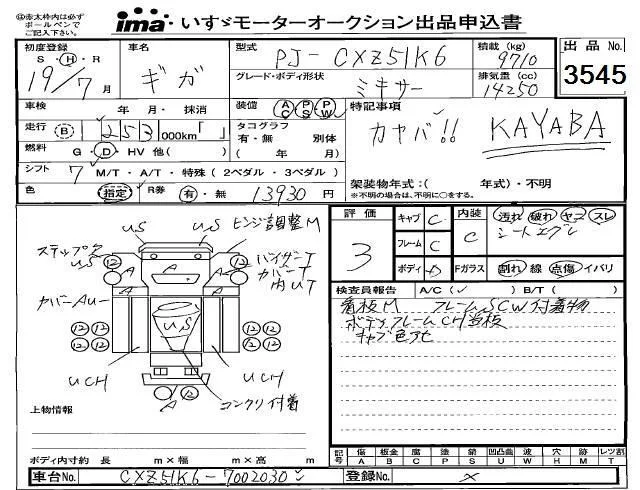 ㊟赤太枠内は必ず
ボールペンで
ご記入下さい。
ima いすゞモーターオークション出品申込書
初度登録 S・H・R 19/7月
車名 ギガ
型式 PJ-CXZ51K6
積載 (kg) 9710
出品No. 3545
グレード・ボディ形状 ミキサー
排気量 (cc) 14250
車検 年 月・抹消
装備 AC PS PW
特記事項
カヤバ!! KAYABA
走行 (B) 253 000km「 」
タコグラフ
有・無 別体
( 年 月)
燃料 G・D・HV 他( )
シフト 7 M/T・A/T・特殊(2ペダル・3ペダル)
架装物年式:( 年式)・不明
※不明の場合は、不明に○をする。
色 指定 R券 有・無 13930 円
評価 3
キャブ C
フレーム C
ボディ D
内装 C
汚れ 破れ ヤニ スレ
シートエグレ
Fガラス 割れ 線 点傷 イバリ
検査員報告 A/C(✓) B/T( )
看板M フレームSCW付着物
ボディフレームCH当板
キャブ色アセ
US US ヒンジ調整M
ステップ穴
US 12 12 バイザーT
カバーT
内UT
A A A
カバーAU
US
12 12 12 12
12 12 12 12
UCH UCH
A
コンクリ付着
上物情報
ボディ内寸約 長 m×幅 m×高 m
記号 傷A 板金B 腐C 塗P 錆S 凹凸曲U 波W 穴H 跡M レツ割T
車台No. CXZ51K6-7002030
登録No. ×